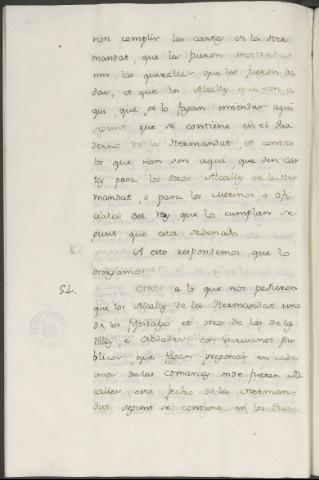 non complir las cartas de la Her
mandat, que les fueron mostradas
nin las querellas que les fueron da
das, et que los Alcalles que son a
qui que se lo fagan emendar aqui
segunt que se contiene en el Qua
derno de la Hermandat et contra
los que non son aqui, que den car
tas para los otros Alcalles de la Her
mandat, o para los Merinos o ofi
ciales del rey que lo cumplan se
gunt que esta ordenado
A esto respondemos que lo
otorgamos.
54. Otrosi a lo que nos pedieron
que los Alcalles de la Hermandat uno
de los fijosdalgo, et otro de los de la
Villas, e Cibdades con escrivanos pu
blicos que fagan pregonar en cada
una de las comarcas onde fueren Al
calles, este fecho de la Herman-
dat segunt se contiene en los Qua